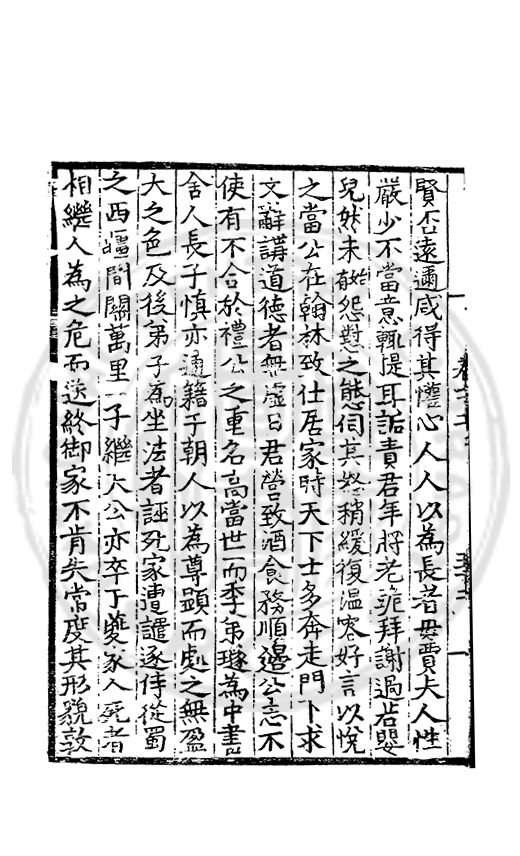 賢否遠邇咸得其懽心人人以為長者母賈夫人性
嚴少不當意輒提耳詬責君年將老跪拜謝過若嬰
兒然未始有怨懟之態伺其怒稍緩復溫容好言以悅
之當公在翰林致仕居家時天下士多奔走門下求
文辭講道德者無虛日君營致酒食務順邊公忘不
使有不合於禮公之重名高當世而季弟璲為中書
舍人長子慎亦通籍于朝人以為尊顯而處之無盈
大之色及後弟子為坐法者誣死家遭譴逐侍從蜀
之西疆間關萬里一子繼夭公亦卒于夔家人死者
相繼人為之危而送終御家不肯失常度其形貌敦